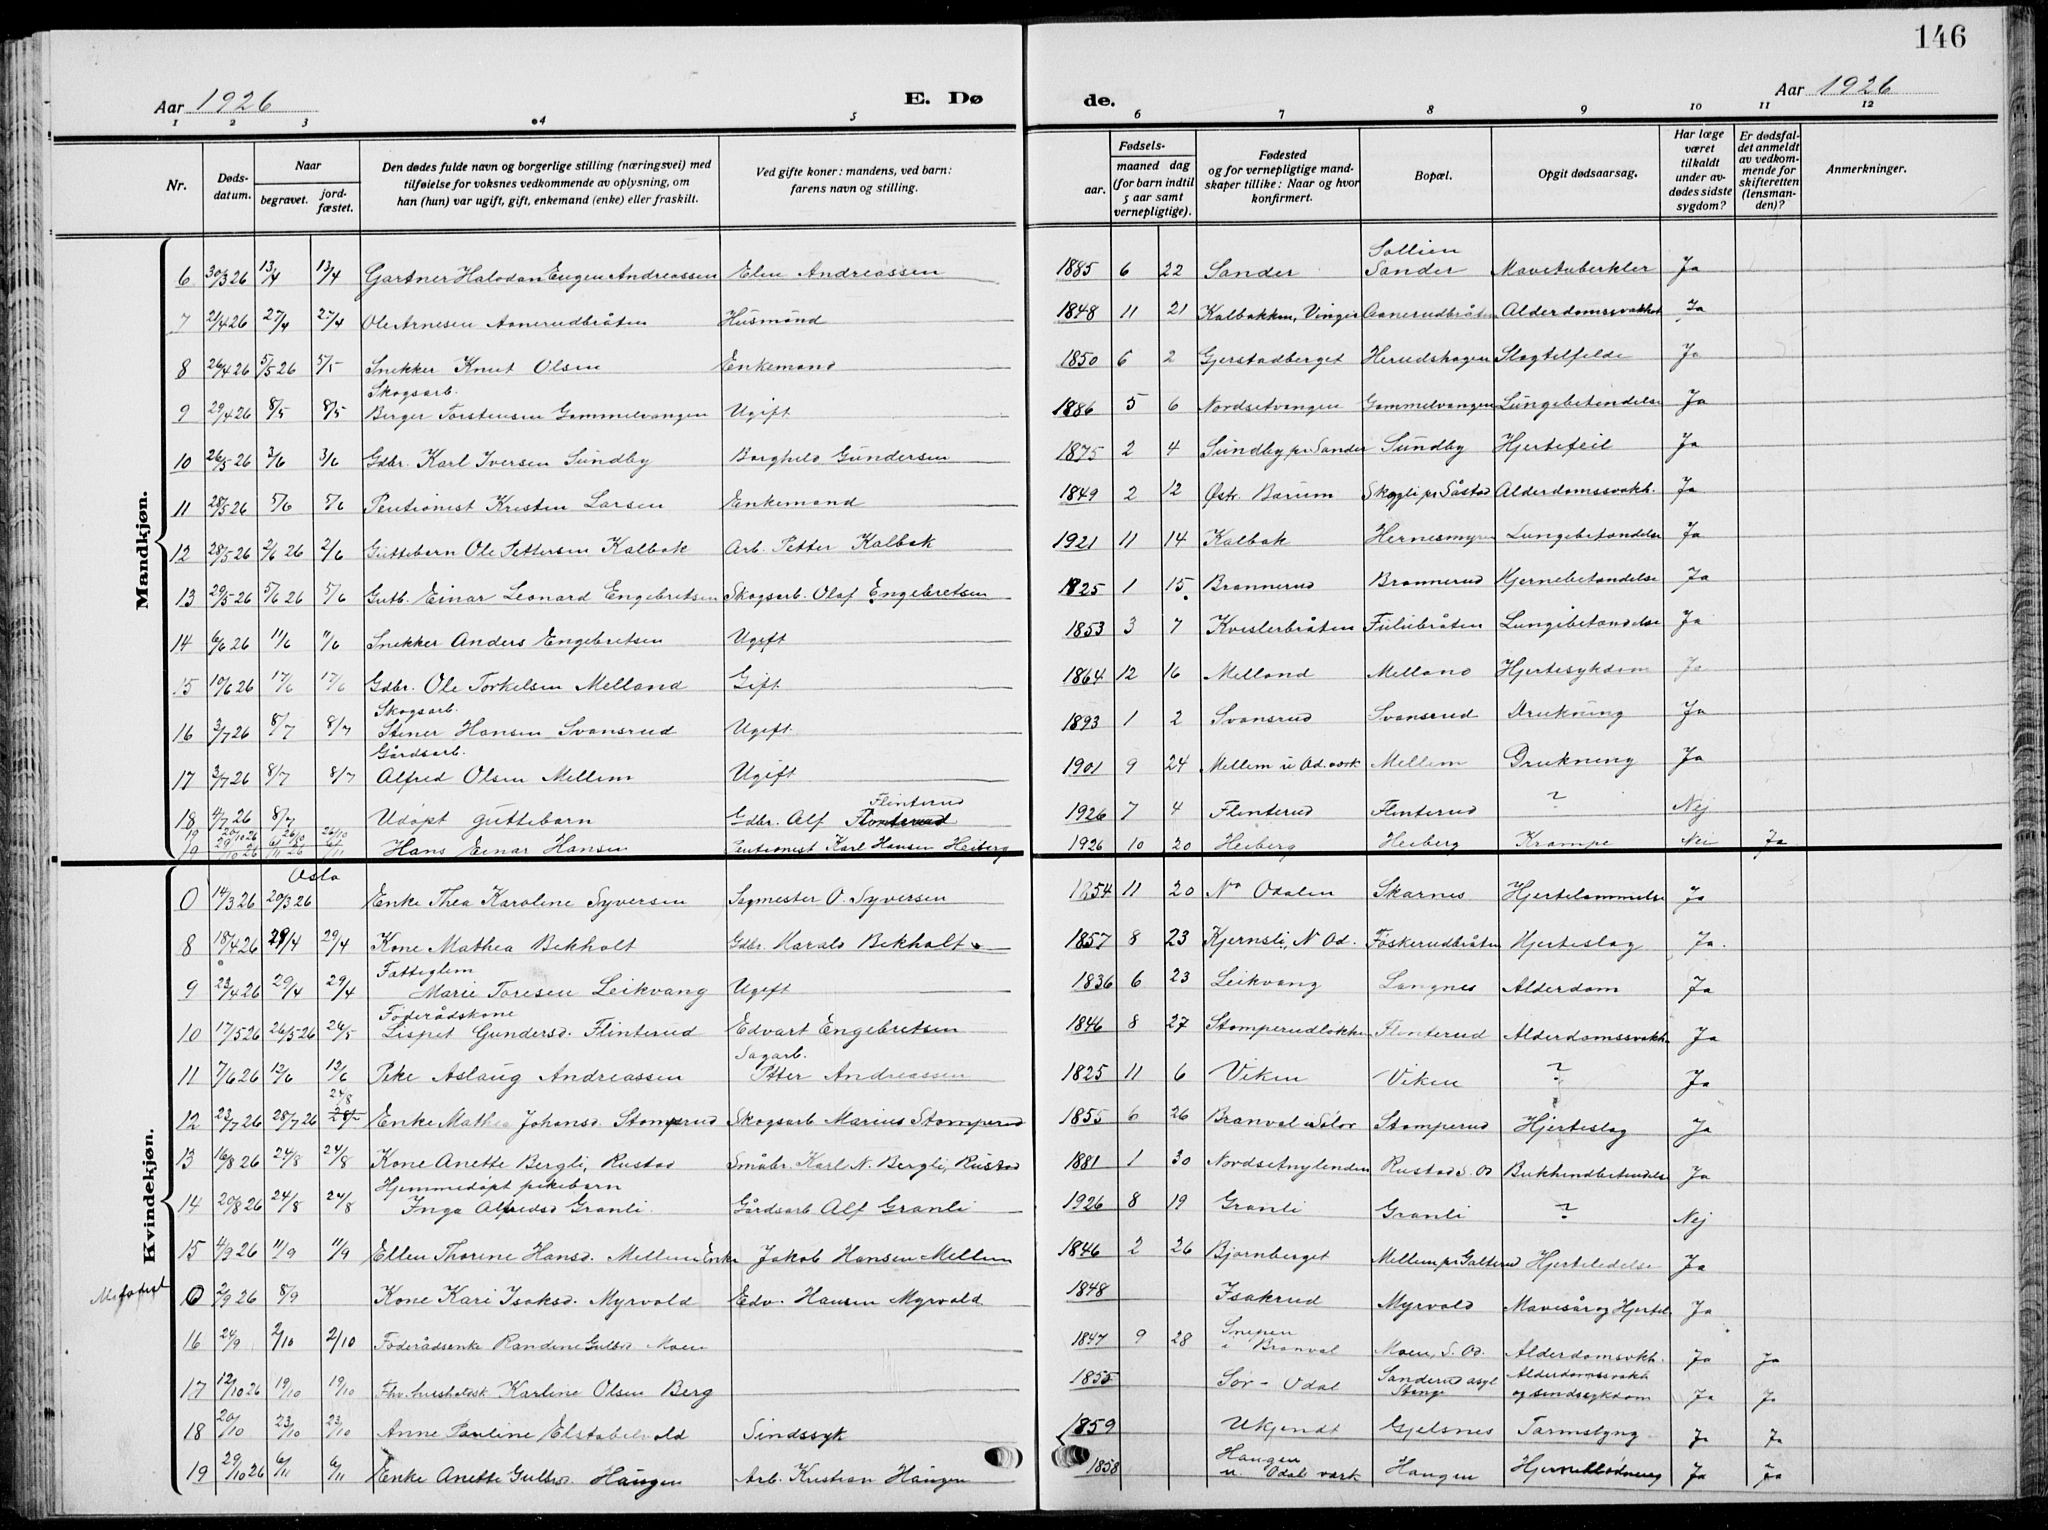 146
Aar 1926 E. Dø de. Aar 1926
1 2 3 4 5 6 7 8 9 10 11 12
Nr. Døds-datum. Naar begravet. jord-fæstet. Den dødes fulde navn og borgerlige stilling (næringsvei) med tilføielse for voksnes vedkommende av oplysning, om han (hun) var ugift, gift, enkemand (enke) eller fraskilt. Ved gifte koner: mandens, ved barn: farens navn og stilling. Fødsels- aar. maaned dag (for barn indtil 5 aar samt vernepligtige). Fødested og for vernepligtige mand-skaper tillike: Naar og hvor konfirmert. Bopæl. Opgit dødsaarsag. Har læge været tilkaldt under av-dødes sidste sygdom? Er dødsfal-det anmeldt av vedkom-mende for skifteretten (lensman-den)? Anmerkninger.
Mandkjøn.
6 30/3 26 13/4 13/4 Gartner Halvdan Eugen Andreassen Elen Andreassen 1885 6 22 Sander Sollien Sander Mavetuberkler Ja
7 21/4 26 27/4 27/4 Ole Arnesen Aanerudbråten Husmand 1848 11 21 Kalbakken, Vinger Aanerudbråten Alderdomssvakhet Ja
8 26/4 26 5/5 26 5/5 Snekker Knut Olsen Enkemand 1850 6 2 Gjerstadberget Herudshagen Slagtilfelde Ja
9 29/4 26 8/5 8/5 Skogsarb. Berger Torstensen Gammelvangen Ugift 1886 5 6 Nordsetvangen Gammelvangen Lungebetendelse Ja
10 26/5 26 3/6 3/6 Gdbr. Karl Iversen Sundby Borghild Gundersen 1875 2 4 Sundby pr Sander Sundby Hjertefeil Ja
11 28/5 26 5/6 5/6 Pentionist Kristen Larsen Enkemand 1849 2 12 Østr. Bærum Skogli pr Såstad Alderdomssvakh. Ja
12 28/5 26 2/6 26 2/6 Guttebarn Ole Pettersen Kalbak Arb. Petter Kalbak 1921 11 14 Kalbak Hernesmyren Lungebetændelse Ja
13 29/5 26 5/6 26 5/6 Gutb. Einar Leonard Engebretsen Skogsarb. Olaf Engebretsen 1825 1 15 Brannerud Brannerud Hjernebetændelse Ja
14 6/6 26 11/6 11/6 Snekker Anders Engebretsen Ugift 1853 3 7 Kveslerbråten Fulubråten Lungebetændelse Ja
15 10/6 26 17/6 17/6 Gdbr. Ole Torkelsen Melland Gift 1864 12 16 Melland Melland Hjertesykdom Ja
16 3/7 26 8/7 8/7 Skogsarb. Stener Hansen Svansrud Ugift 1893 1 2 Svansrud Svansrud Drukning Ja
17 3/7 26 8/7 8/7 Gårdsarb. Alfred Olsen Mellem Ugift 1901 9 24 Mellem u Od. verk Mellem Drukning Ja
18 4/7 26 8/7 Udøpt guttebarn Gdbr. Alf Flinterud 1926 7 4 Flinterud Flinterud ? Nej
19 20/10 26 26/10 26/10 Hans Einar Hansen Pentionist Karl Hansen Heiberg 1926 10 20 Heiberg Heiberg Krampe Nei Ja
Kvindekjøn.
0 14/3 26 20/3 26 Oslo Enke Thea Karoline Syversen Sagmester O. Syversen 1854 11 20 No Odalen Skarnes Hjertelammelse Ja
8 18/4 26 29/4 29/4 Kone Mathea Bekholt Gdbr. Harald Bekholt 1857 8 23 Kjernsli, N Od. Føskerudbråten Hjerteslag Ja.
9 23/4 26 29/4 29/4 Fattiglem Marie Toresen Leikvang Ugift 1836 6 23 Leikvang Langnes Alderdom Ja
10 17/5 26 26/5 26 26/5 Føderådskone Lispet Gundersd. Flinterud Edvart Engebretsen 1846 8 27 Stomperudløkken Flinterud Alderdomssvakh. Ja
11 7/6 26 12/6 13/6 Pike Aslaug Andreassen Sagarb. Petter Andreassen 1825 11 6 Viken Viken ? Ja
12 23/7 26 28/7 26 24/8 Enke Mathea Johansd. Stomperud Skogsarb Marius Stomperud 1855 6 26 Branval i Solør Stomperud Hjerteslag Ja
13 16/8 26 24/8 24/8 Kone Anette Bergli, Rustad Småbr. Karl N. Bergli, Rustad 1881 1 30 Nordsetnylenden Rustad S. Od Bukhindbetendelse Ja
14 20/8 26 24/8 24/8 Hjemmedøpt pikebarn Inga Alfredsd Granli Gårdsarb Alf Granli 1926 8 19 Granli Granli ? Nej
15 4/9 26 11/9 11/9 Ellen Thorine Hansd. Mellem Enke Jakob Hansen Mellem 1846 2 26 Bjørnberget Mellem pr Galterud Hjertelidelse Ja
0 2/9 26 8/9 Kone Kari Isaksd. Myrvold Edv. Hansen Myrvold 1848 Isakrud Myrvold Mavesår og Hjertel. Ja
16 24/9 2/10 2/10 Føderådsenke Randine Gulbsd Moen 1847 9 28 Snepen i Branval Moen, S. Od. Alderdomsvkh. Ja Ja
17 12/10 26 19/10 19/10 Fhv. husholdsk Karline Olsen Berg 1855 Sør-Odal Sanderud asyl Stange Alderdomssvakh og sindssykdom Ja Ja
18 20/10 23/10 23/10 Anne Pauline Elstabelvold Sindssyk 1859 Ukjendt Gjelsnes Tarmslyng Ja Ja
19 29/10 26 6/11 6/11 Enke Anette Gulbsd. Haugen Arb. Kristian Haugen 1858 Haugen u. Odals værk Haugen Hjerneblødning Ja Ja